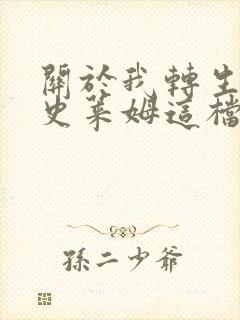 關於我轉生
史萊姆這檔
孫二少爺